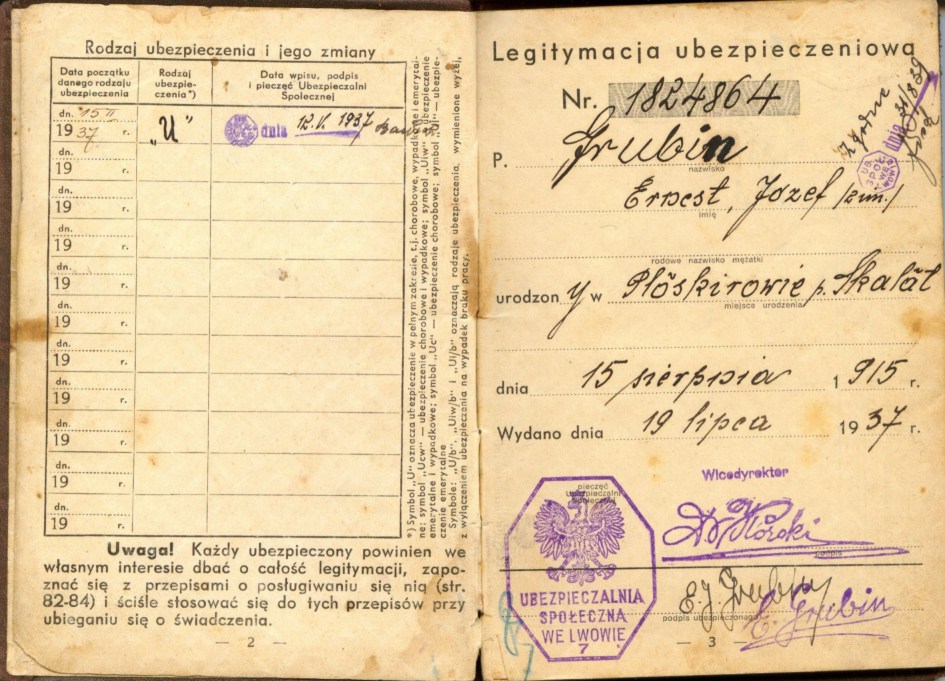 Rodzaj ubezpieczenia i jego zmiany
Data początku danego rodzaju ubezpieczenia
Rodzaj ubezpie-czenia*)
Data wpisu, podpis i pieczęć Ubezpieczalni Społecznej
dn. 15 II
1937 r.
„U"
dnia 12.V.1937
dn.
19 r.
dn.
19 r.
dn.
19 r.
dn.
19 r.
dn.
19 r.
dn.
19 r.
dn.
19 r.
dn.
19 r.
dn.
19 r.
dn.
19 r.
*) Symbol „U" oznacza ubezpieczenie w pełnym zakresie, t.j. chorobowe, wypadkowe i emerytal-
ne; symbol „Ucw" — ubezpieczenie chorobowe i wypadkowe; symbol „Uiw" — ubezpieczenie
emerytalne i wypadkowe; symbol „Uc" — ubezpieczenie chorobowe; symbol „Ui" — ubezpie-
czenie emerytalne
Symbole: „U/b", „Uiw/b" i „Ui/b" oznaczają rodzaje ubezpieczenia, wymienione wyżej,
z wyłączeniem ubezpieczenia na wypadek braku pracy.
Uwaga! Każdy ubezpieczony powinien we
własnym interesie dbać o całość legitymacji, zapo-
znać się z przepisami o posługiwaniu się nią (str.
82-84) i ściśle stosować się do tych przepisów przy
ubieganiu się o świadczenia.
— 2 —
Legitymacja ubezpieczeniowa
Nr. 1824864
P. Grubin
nazwisko
Ernest, Józef
imię
rodowe nazwisko mężatki
urodzony w Płoskirowie p. Skałat
miejsce urodzenia
dnia 15 sierpnia 1915 r.
Wydano dnia 19 lipca 1937 r.
pieczęć
Ubezpieczalni
Społecznej
UBEZPIECZALNIA
SPOŁECZNA
WE LWOWIE
7
Wicedyrektor
podpis
E J Grubin
E. Grubin
podpis ubezpieczonego
— 3